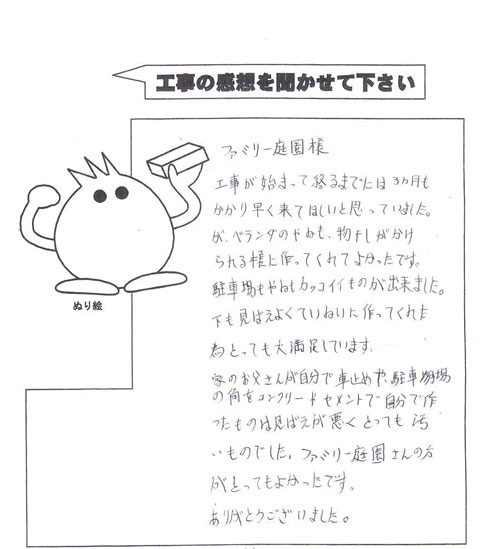 工事の感想を聞かせて下さい
ファミリー庭園様
工事が始まって終るまでには3ヵ月も
かかり早く来てほしいと思っていました。
が、ベランダのやねも、物干しがかけ
られる様に作ってくれてよかったです。
駐車場もやねもカッコイイものが出来ました。
下も見はえよくていねいに作ってくれた
為とっても大満足しています。
家のお父さんが自分で車止めや、駐車場
の角をコンクリードセメントで自分で作
ったものは見ばえが悪くとっても汚
いものでした。ファミリー庭園さんの方
がとってもよかったです。
ありがとうございました。
ぬり絵